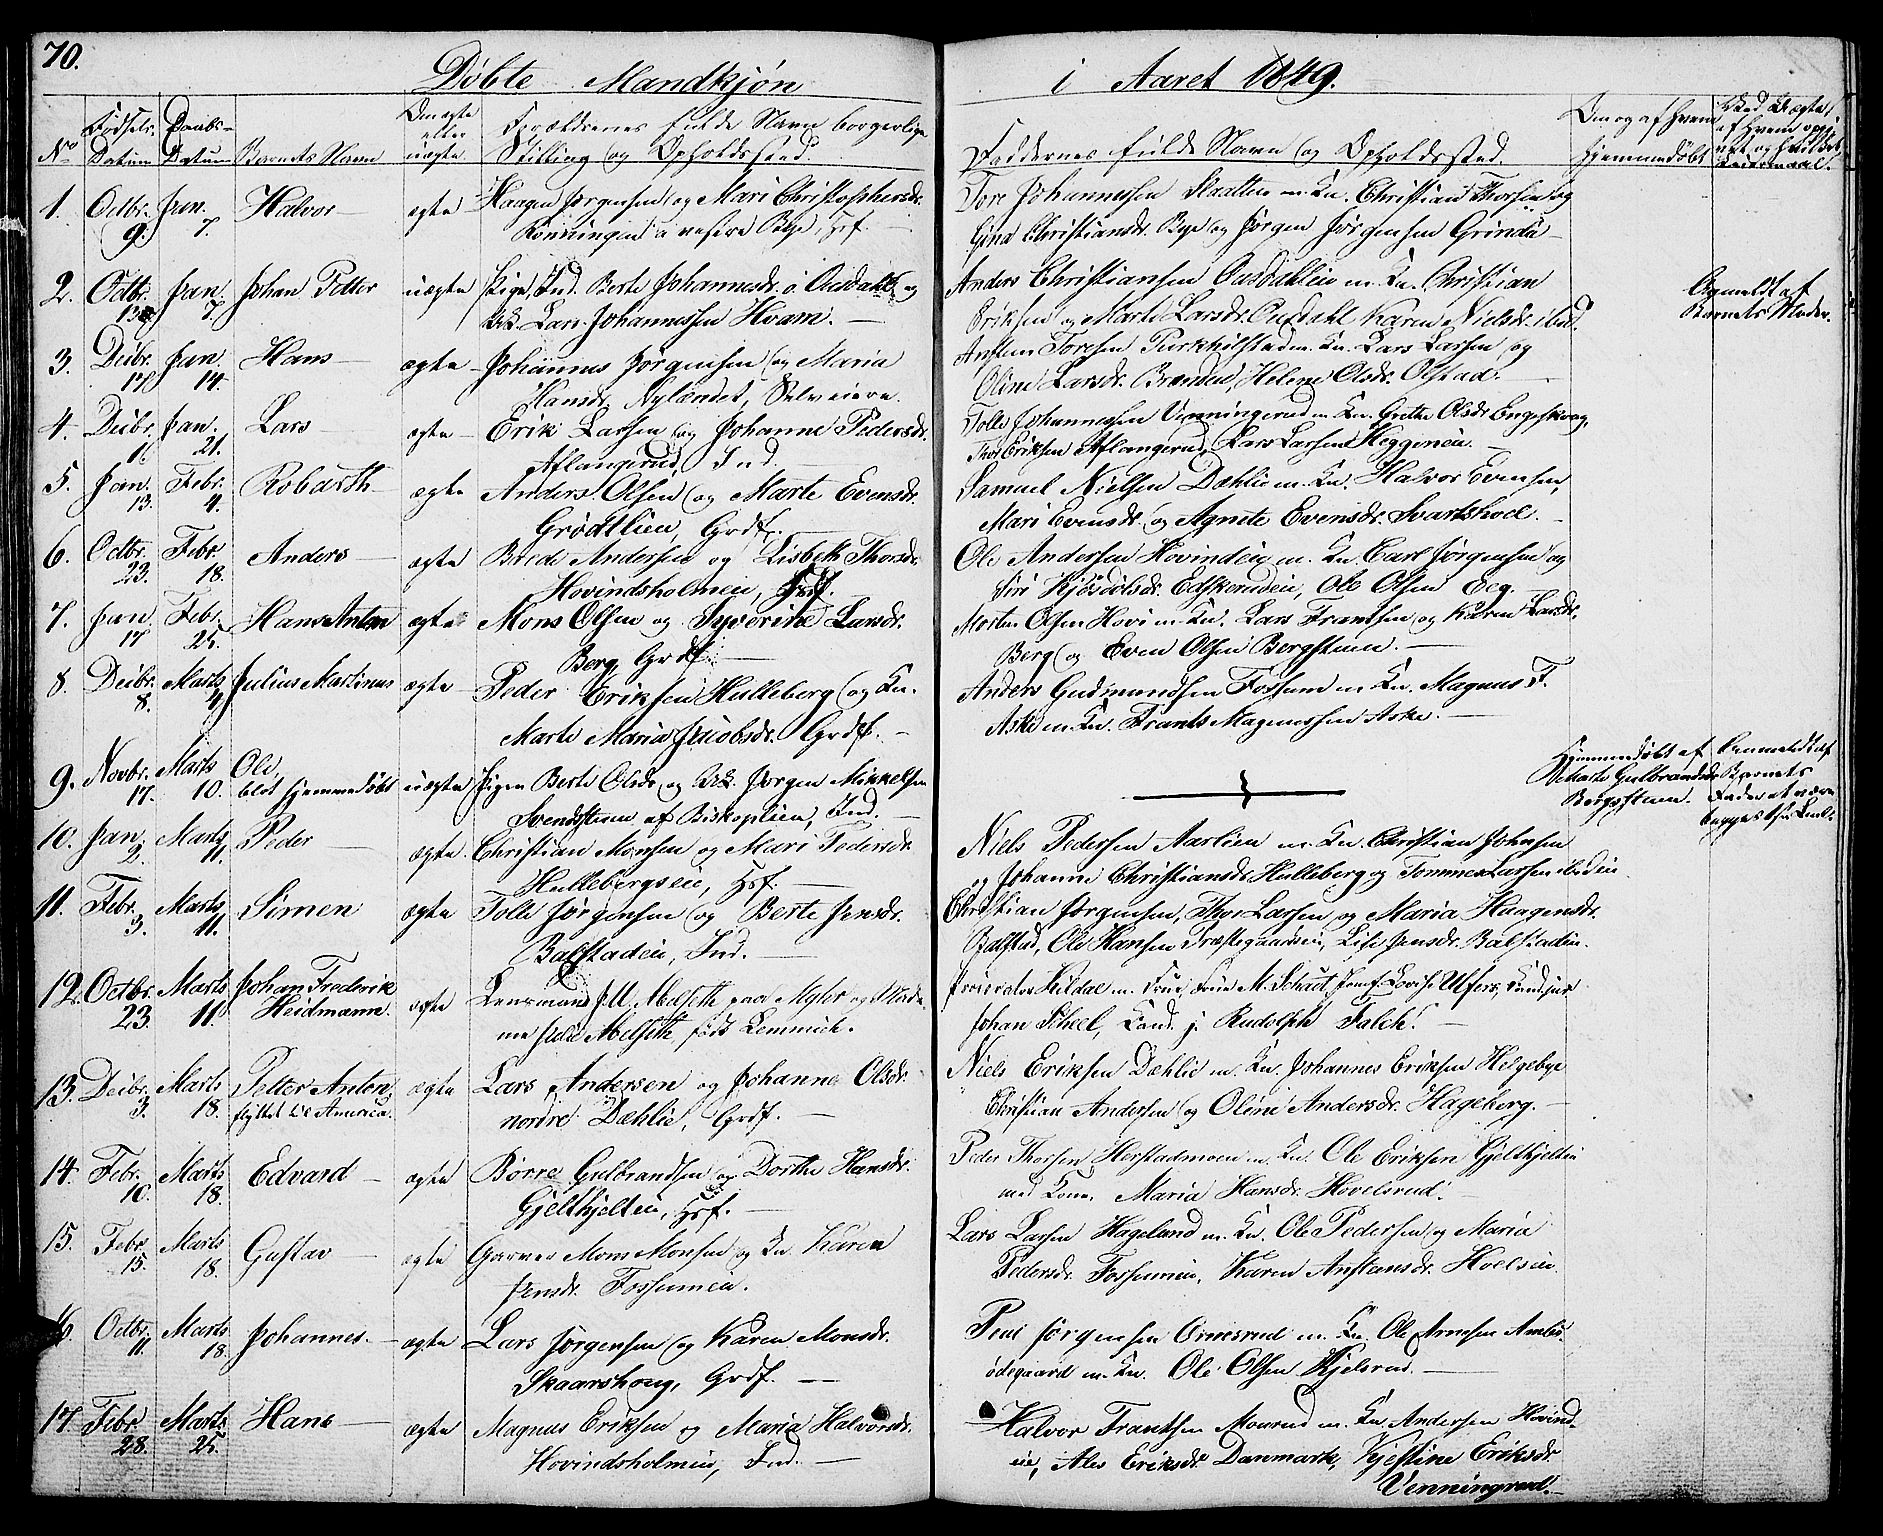 70.
Döbte Mandkjøn
i Aaret 1849.
No
Fødsels Datum
Daabs- Datum
Barnets Navn
Om ægte eller uægte
Forældrenes fulde Navn borgerlige
Stilling og Opholdssted.
Faddernes fulde Navn og Opholdssted.
Om og af hvem
hjemmedøbt
1. Octbr. 9. Jan. 7. Halvor ægte Haagen Jørgensen og Mari Christophersdr.
Rønningen vestre Bye, Hsf.
Tore Johannesen Slaatten m. Kn. Christian Thorsen og
Gina Christiansdr. Bye og Jørgen Jørgensen Grinda
2. Octbr. Jan. 7. Johan Petter uægte Pige, Ind. Berte Johannesdr. og
Lars Johannessen Hvam.
Anders Christiansen m. Kn. Christian
Eriksen og Marte Larsdr. Karen Nielsdr. ibid.
Angivelse af
Barnets Moder.
3. Decbr. 17 Jan. 14. Hans ægte Johannes Jørgensen og Maria
Hansdr. Nylændet, Selveiere
Toresen m. Kn. Lars Larsen og
Oline Larsdr. Brænden, Helene Olsdr. Olstad.
4. Decbr. 1. Jan. 21. Lars ægte Erik Larsen og Johanne Pedersdr.
Aflangerud, Ind.
Tolle Johannesen Venningerud m. Kn. Grethe Olsdr.
Thor Eriksen Aflangerud, Lars Larsen Heggeneie.
5. Jan. 13. Febr. 4. Robarth ægte Anders Olsen og Marte Evensdr.
Grødtlien, Grdf.
Samuel Nielsen Dæhlie m. Kn. Halvor Evensen,
Mari Evensdr. og Agnete Evensdr. Svartshoel.
6. Octbr. 23. Febr. 18. Anders ægte Brede Andersen og Lisbeth Thorsdr.
Hovindsholmen,
Ole Andersen Hovindeie m. Kn. Carl Jørgensen og
Siri Ole Olsen Eeg.
7. Jan. 17 Febr. 25. Hans Anton ægte Mons Olsen og Syverine Larsdr.
Berg, Grdf.
Morten Olsen Hovi m. Kn. Lars Frantsen og Karen Larsdr.
Berg og Even Olsen Bergsteien.
8. Decbr. 8. Marts 4 Julius Martinus ægte Peder Eriksen Hulleberg og Kn.
Marte Maria Jacobsdr. Grdf.
Anders Gudmundsen Fossum m. Kn. Magnus F.
Aske m. Kn. Frants Magnussen Aske.
9. Novbr. 17. Marts 10. Ole, blot hjemmedøbt uægte Pigen Berte Olsdr. og Jørgen Mikkelsen
af Biskoplien, Ind.
Hjemmedøbt af
Marte Gulbrandsdr.
Anmeldt af
Barnets
10. Jan. 2. Marts 11. Peder ægte Christian Monsen og Mari Pedersdr.
Hullebergseie, Hsf.
Niels Pedersen Aarlien m. Kn. Christian Johnsen
og Johanne Christiansdr. Hulleberg og Tommes Larsen
11. Febr. 3. Marts 11. Simen ægte Tolle Jørgensen og Berte Jensdr.
Balstadeie, Ind.
Christian Jørgensen, Thor Larsen og Maria Haagensdr.
Balstad, Ole Hansen Præstegaardseie, Lise Jensdr. Balstadeie.
12. Octbr. 23. Marts 11. Johan Frederik Heidmann ægte Lensmand J. U. Melseth paa og Mada-
me Melseth født Lemmich.
Procurator Kildal m. Frue, Frue M. Schiøt, Jomf. Lovise Ulfers,
Johan Scheel, Cand. j. Rudolph Falck.
13. Decbr. 3. Marts 18. Petter Anton, flyttet til America. ægte Lars Andersen og Johanne Olsdr.
nordre Dæhlie, Grdf.
Niels Eriksen Dæhlie m. Kn. Johannes Eriksen Helgebye
Christian Andersen og Oline Andersdr. Hageberg.
14. Febr. 10. Marts 18. Edvard ægte Børre Gulbrandsen og Dorthe Hansdr.
Gjeltkjelteie, Hsf.
Peder Thorsen Herstadmoen m. Kn. Ole Eriksen Gjeltkjelteie
med Kone, Maria Hansdr. Hovelsrud.
15. Febr. 15. Marts 18. Gustav ægte Garver Mons Monsen og Kn. Karen
Jensdr. Fossumeie.
Lars Larsen Hageland m. Kn. Ole Pedersen og Maria
Pedersdr. Fossumeie, Karen Anstensdr. Hoelseie.
16. Octbr. 11. Marts 18. Johannes. ægte Lars Jørgensen og Karen Monsdr.
Skaarshoug, Grdf.
Poul Jørgensen Ormsrud m. Kn. Ole Arnesen
ødegaard m. Kn. Ole Olsen Kjelsrud.
17. Febr. 28. Marts 25. Hans ægte Magnus Eriksen og Maria Halvorsdr.
Hovindsholmen, Ind.
Halvor Frantsen Monrud m. Kn. Andersen Hovind-
eie, Ales Eriksdr. Danmark, Kjestine Eriksdr.
Venningrud.